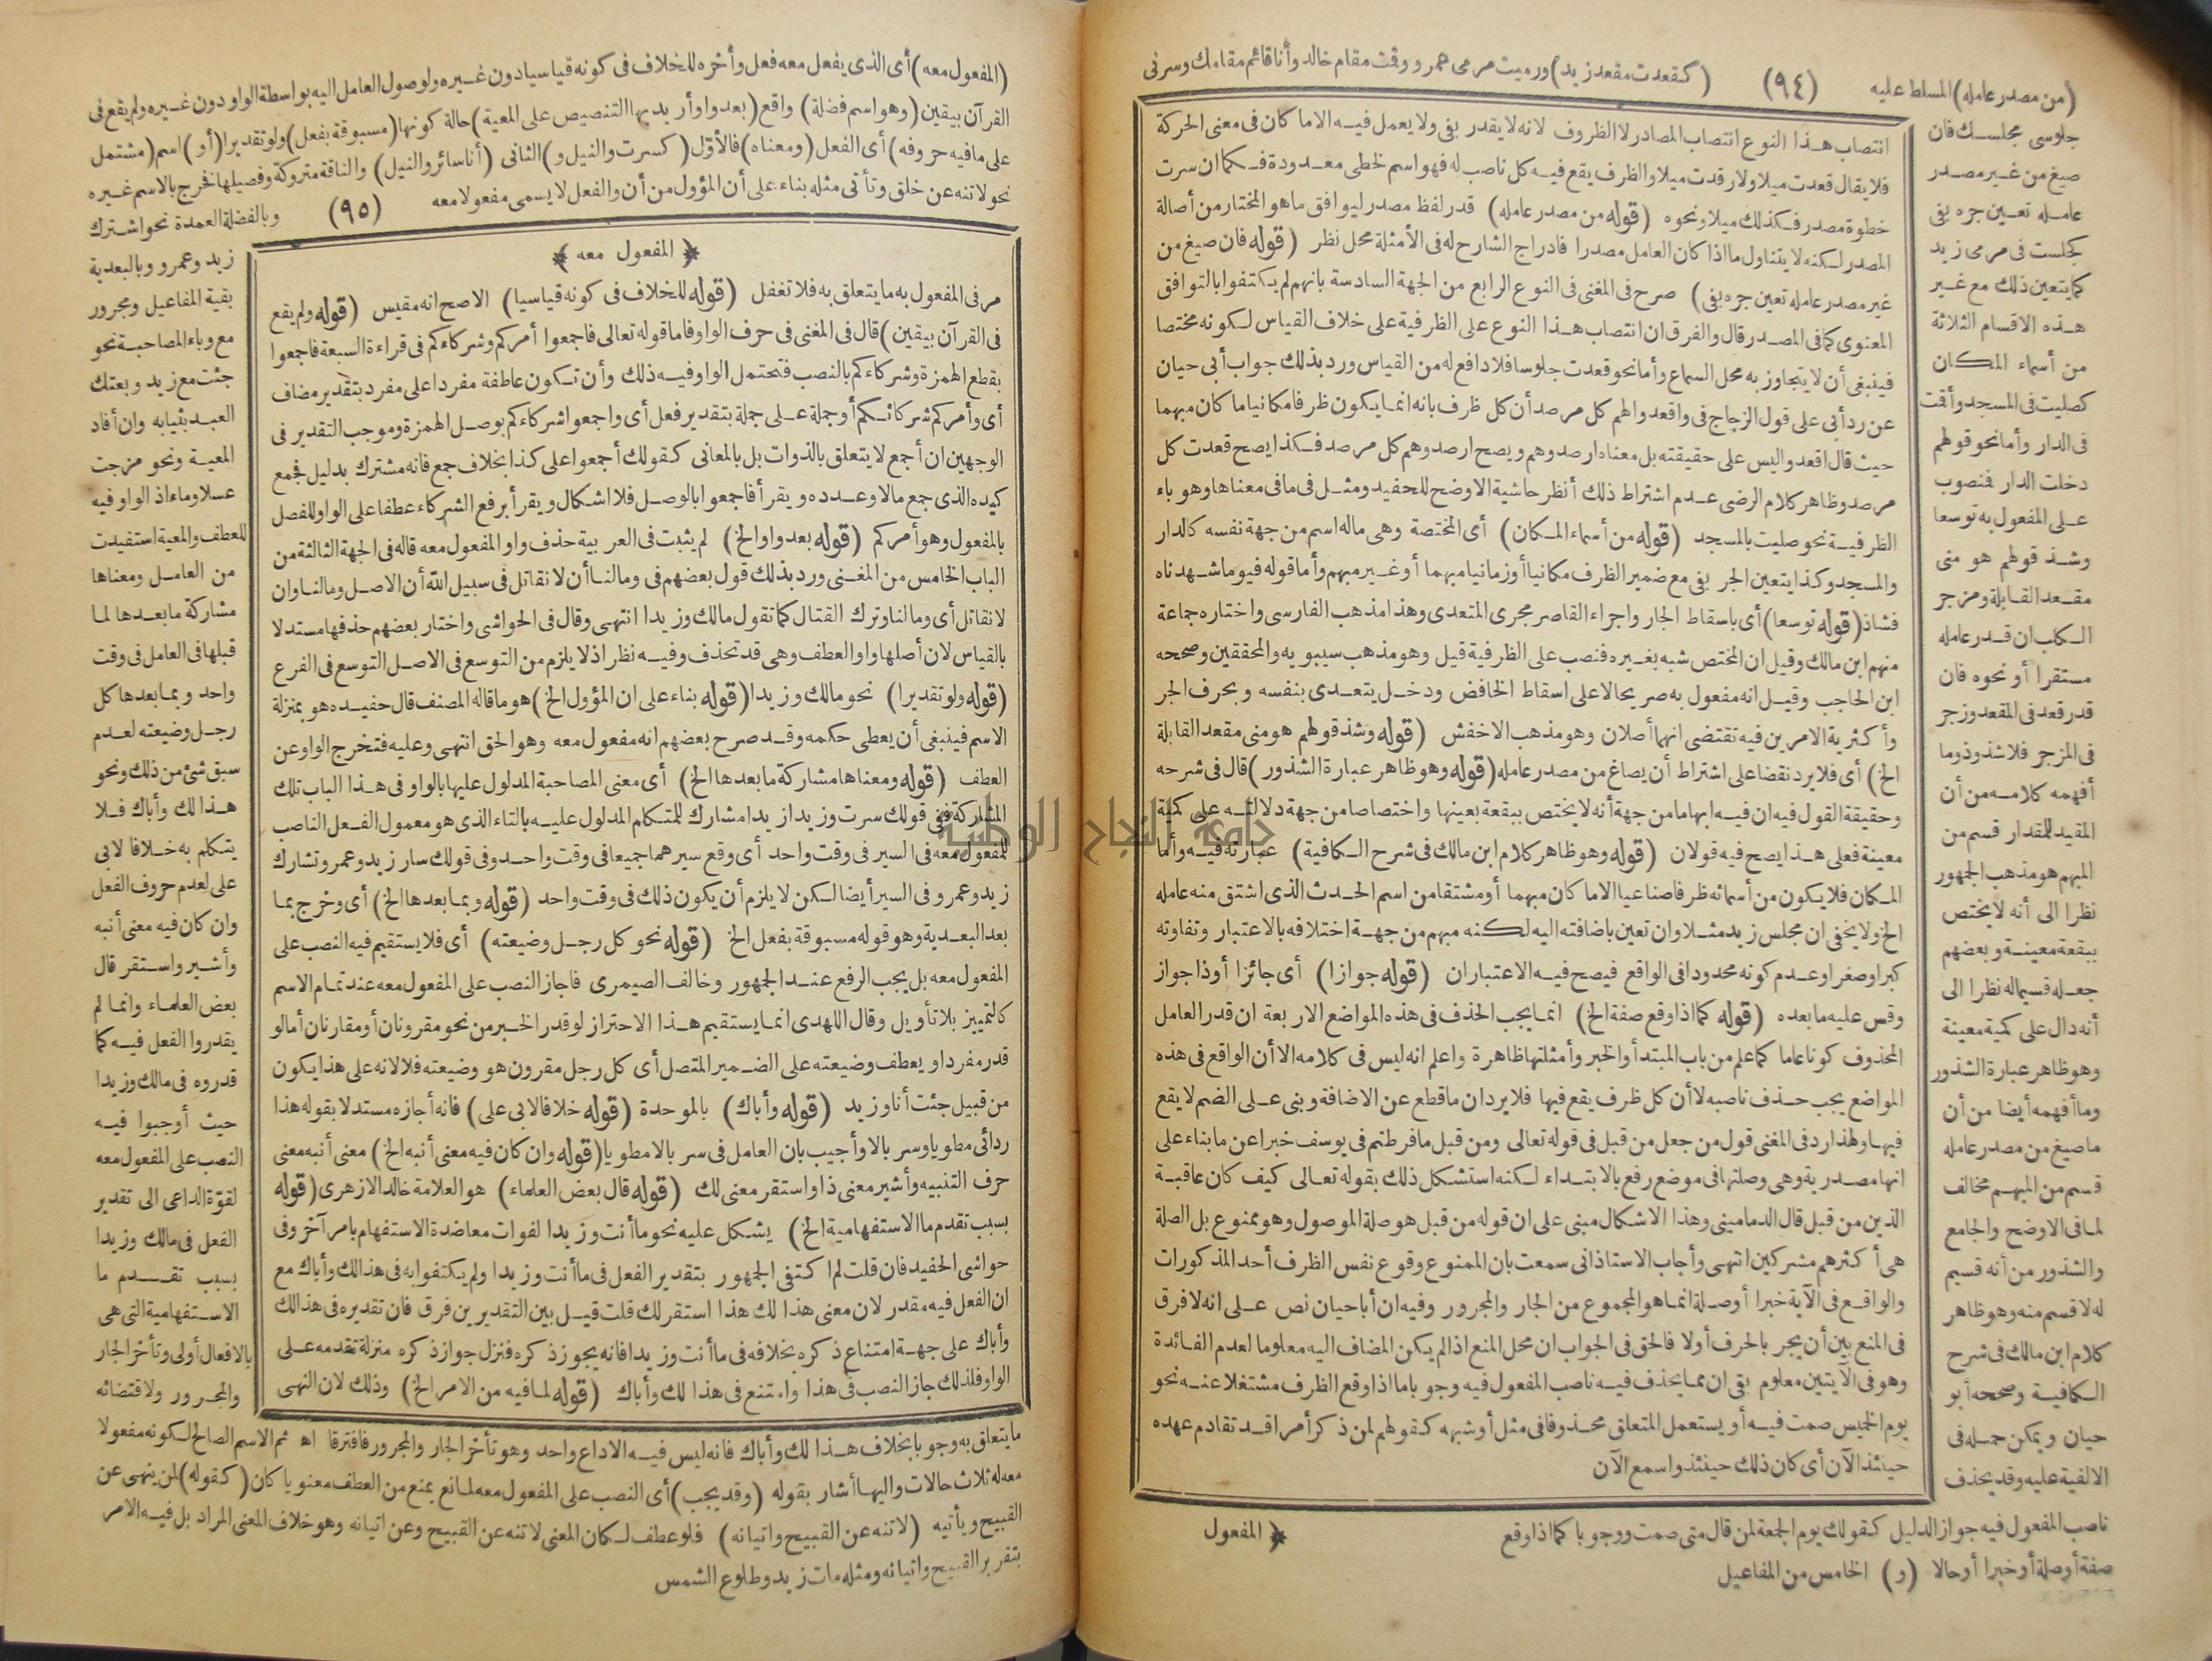 (من مصدر عامله) المسلط عليه (٩٤) (كقعدت مقعد زيد) ورميت مرمى عمرو وقت مقام خالد وأنا قائم مقامك وسرنى
جلوسى مجلسك فان
صيغ من غير مصدر
عامله تعين جره بفى
كجلست فى مرمى زيد
كما يتعين ذلك مع غير
هذه الاقسام الثلاثة
من أسماء المكان
كصليت فى المسجد وأقمت
فى الدار وأما نحو قولهم
دخلت الدار فنصوب
على المفعول به توسعا
وشذ قولهم هو منى
مقعد القابلة ومزجر
الكلب ان قدر عامله
مستقرا أو نحوه فان
قدر قعد فى المقعد وزجر
فى المزجر فلا شذوذ وما
أفهمه كلامه من أن
المقيد للمقدار قسم من
المبهم هو مذهب الجمهور
نظرا الى أنه لا يختص
ببقعة معينة وبعضهم
جعله قسيما له نظرا الى
أنه دال على كمية معينة
وهو ظاهر عبارة الشذور
وما أفهمه أيضا من أن
ما صيغ من مصدر عامله
قسم من المبهم مخالف
لما فى الاوضح والجامع
والشذور من أنه قسيم
له لا قسم منه وهو ظاهر
كلام ابن مالك فى شرح
الكافية وصححه أبو
حيان ويمكن حمله فى
الالفية عليه وقد يحذف
ناصب المفعول فيه جواز الدليل كقولك يوم الجمعة لمن قال متى صمت ووجوبا كما اذا وقع
صفة أو صلة أو خبرا أو حالا (و) الخامس من المفاعيل
انتصاب هذا النوع انتصاب المصادر لا الظروف لانه لا يقدر بفى ولا يعمل فيه الا ما كان فى معنى الحركة
فلا يقال قعدت ميلا ولا رقدت ميلا والظرف يقع فيه كل ناصب له فهو اسم لخطى معدودة فكما ان سرت
خطوة مصدر فكذلك ميلا ونحوه (قوله من مصدر عامله) قدر لفظ مصدر ليوافق ما هو المختار من أصالة
المصدر لكنه لا يتناول ما اذا كان العامل مصدرا فادراج الشارح له فى الأمثلة محل نظر (قوله فان صيغ من
غير مصدر عامله تعين جره بفى) صرح فى المغنى فى النوع الرابع من الجهة السادسة بانهم لم يكتفوا بالتوافق
المعنوى كما فى المصدر قال والفرق ان انتصاب هذا النوع على الظرفية على خلاف القياس لكونه مختصا
فينبغى أن لا يتجاوز به محل السماع وأما نحو قعدت جلوسا فلا دافع له من القياس ورد بذلك جواب أبى حيان
عن رد أبى على قول الزجاج فى واقعدوا لهم كل مرصد أن كل ظرف بانه انما يكون ظرفا مكانيا ما كان مبهما
حيث قال اقعدوا ليس على حقيقته بل معناه ارصدوهم ويصح ارصدوهم كل مرصد فكذا يصح قعدت كل
مرصد وظاهر كلام الرضى عدم اشتراط ذلك أنظر حاشية الاوضح للحفيد ومثل فى ما فى معناها وهو باء
الظرفية نحو صليت بالمسجد (قوله من أسماء المكان) أى المختصة وهى ماله اسم من جهة نفسه كالدار
والمسجد وكذا يتعين الجر بفى مع ضمير الظرف مكانيا أو زمانيا مبهما أو غير مبهم وأما قوله فيوما شهدناه
فشاذ (قوله توسعا) أى باسقاط الجار واجراء القاصر مجرى المتعدى وهذا مذهب الفارسى واختاره جماعة
منهم ابن مالك وقيل ان المختص شبه بغيره فنصب على الظرفية قيل وهو مذهب سيبويه والمحققين وصححه
ابن الحاجب وقيل انه مفعول به صريحا لا على اسقاط الخافض ودخل يتعدى بنفسه وبحرف الجر
وأكثرية الامرين فيه تقتضى انهما أصلان وهو مذهب الاخفش (قوله وشذ قولهم هو منى مقعد القابلة
الخ) أى فلا يرد نقضا على اشتراط أن يصاغ من مصدر عامله (قوله وهو ظاهر عبارة الشذور) قال فى شرحه
وحقيقة القول فيه ان فيه ابهاما من جهة أنه لا يختص ببقعة بعينها واختصاصا من جهة دلالته على كمية
معينة فعلى هذا يصح فيه قولان (قوله وهو ظاهر كلام ابن مالك فى شرح الكافية) عبارته فيه وأما
المكان فلا يكون من أسمائه ظرفا صناعيا الا ما كان مبهما أو مشتقا من اسم الحدث الذى اشتق منه عامله
الخ ولا يخفى ان مجلس زيد مثلا وان تعين باضافته اليه لكنه مبهم من جهة اختلافه بالاعتبار وتفاوته
كبرا وصغرا وعدم كونه محدودا فى الواقع فيصح فيه الاعتباران (قوله جوازا) أى جائزا أو ذا جواز
وقس عليه ما بعده (قوله كما اذا وقع صفة الخ) انما يجب الحذف فى هذه المواضع الاربعة ان قدر العامل
المحذوف كونا عاما كما علم من باب المبتدأ والخبر وأمثلتها ظاهرة واعلم انه ليس فى كلامه الا أن الواقع فى هذه
المواضع يجب حذف ناصبه لا أن كل ظرف يقع فيها فلا يرد ان ما قطع عن الاضافة وبنى على الضم لا يقع
فيها ولهذا رد فى المغنى قول من جعل من قبل فى قوله تعالى ومن قبل ما فرطتم فى يوسف خبرا عن ما بناء على
انها مصدرية وهى وصلتها فى موضع رفع بالابتداء لكنه استشكل ذلك بقوله تعالى كيف كان عاقبة
الذين من قبل قال الدمامينى وهذا الاشكال مبنى على ان قوله من قبل هو صلة الموصول وهو ممنوع بل الصلة
هى أكثرهم مشركين انتهى وأجاب الاستاذ انى سمعت بان الممنوع وقوع نفس الظرف أحد المذكورات
والواقع فى الآية خبرا أو صلة انما هو المجموع من الجار والمجرور وفيه ان أبا حيان نص على انه لا فرق
فى المنع بين أن يجر بالحرف أولا فالحق فى الجواب ان محل المنع اذا لم يكن المضاف اليه معلوما لعدم الفائدة
وهو فى الآيتين معلوم بقى ان مما يحذف فيه ناصب المفعول فيه وجوبا ما اذا وقع الظرف مشتغلا عنه نحو
يوم الخميس صمت فيه أو يستعمل المتعلق محذوفا فى مثل أو شبهه كقولهم لمن ذكر أمرا قد تقادم عهده
حينئذ الآن أى كان ذلك حينئذ واسمع الآن
﴿ المفعول
(المفعول معه) أى الذى يفعل معه فعل وأخره للخلاف فى كونه قياسيا دون غيره ولوصول العامل اليه بواسطة الواو دون غيره ولم يقع فى
القرآن بيقين (وهو اسم فضلة) واقع (بعد واو أريد بها التنصيص على المعية) حالة كونها (مسبوقة بفعل) ولو تقديرا (أو) اسم (مشتمل
على ما فيه حروفه) أى الفعل (ومعناه) فالأول (كسرت والنيل و) الثانى (أنا سائر والنيل) والناقة متروكة وفصيلها فخرج بالاسم غيره
نحو لا تنه عن خلق وتأتى مثله بناء على أن المؤول من أن والفعل لا يسمى مفعولا معه (٩٥) وبالفضلة العمدة نحو اشترك
زيد وعمرو وبالبعدية
بقية المفاعيل ومجرور
مع وباء المصاحبة نحو
جئت مع زيد وبعتك
العبد بثيابه وان أفاد
المعية ونحو مزجت
عسلا وماء اذ الواو فيه
للعطف والمعية استفيدت
من العامل ومعناها
مشاركة ما بعدها لما
قبلها فى العامل فى وقت
واحد وبما بعدها كل
رجل وضيعته لعدم
سبق شئ من ذلك ونحو
هذا لك وأباك فلا
يتكلم به خلافا لابى
على لعدم حروف الفعل
وان كان فيه معنى أنبه
وأشير واستقر قال
بعض العلماء وانما لم
يقدروا الفعل فيه كما
قدروه فى مالك وزيدا
حيث أوجبوا فيه
النصب على المفعول معه
لقوة الداعى الى تقدير
الفعل فى مالك وزيدا
بسبب تقدم ما
الاستفهامية التى هى
بالافعال أولى وتأخر الجار
والمجرور ولاقتضائه
﴿ المفعول معه ﴾
مر فى المفعول به ما يتعلق به فلا تغفل (قوله للخلاف فى كونه قياسيا) الاصح انه مقيس (قوله ولم يقع
فى القرآن بيقين) قال فى المغنى فى حرف الواو فاما قوله تعالى فاجمعوا أمركم وشركاءكم فى قراءة السبعة فاجمعوا
بقطع الهمزة وشركاءكم بالنصب فتحتمل الواو فيه ذلك وأن تكون عاطفة مفردا على مفرد بتقدير مضاف
أى وأمر كم شركائكم أو جملة على جملة بتقدير فعل أى واجمعوا شركاءكم بوصل الهمزة وموجب التقدير فى
الوجهين ان أجمع لا يتعلق بالذوات بل بالمعانى كقولك أجمعوا على كذا بخلاف جمع فانه مشترك بدليل فجمع
كيده الذى جمع مالا وعدده ويقرأ فاجمعوا بالوصل فلا اشكال ويقرأ برفع الشركاء عطفا على الواو للفصل
بالمفعول وهو أمركم (قوله بعد واو الخ) لم يثبت فى العربية حذف واو المفعول معه قاله فى الجهة الثالثة من
الباب الخامس من المغنى ورد بذلك قول بعضهم فى ومالنا أن لا نقاتل فى سبيل الله أن الاصل ومالنا وان
لا نقاتل أى ومالنا وترك القتال كما تقول مالك وزيدا انتهى وقال فى الحواشى واختار بعضهم حذفها مستدلا
بالقياس لان أصلها واو العطف وهى قد تحذف وفيه نظر اذ لا يلزم من التوسع فى الاصل التوسع فى الفرع
(قوله ولو تقديرا) نحو مالك وزيدا (قوله بناء على ان المؤول الخ) هو ما قاله المصنف قال حفيده هو بمنزلة
الاسم فينبغى أن يعطى حكمه وقد صرح بعضهم انه مفعول معه وهو الحق انتهى وعليه فتخرج الواو عن
العطف (قوله ومعناها مشاركة ما بعدها الخ) أى معنى المصاحبة المدلول عليها بالواو فى هذا الباب تلك
المشاركة ففى قولك سرت وزيدا زيدا مشارك للمتكلم المدلول عليه بالتاء الذى هو معمول الفعل الناصب
للمفعول معه فى السير فى وقت واحد أى وقع سيرهما جميعا فى وقت واحد وفى قولك سار زيد وعمرو تشارك
زيد وعمرو فى السير أيضا لكن لا يلزم أن يكون ذلك فى وقت واحد (قوله وبما بعدها الخ) أى وخرج بما
بعد البعدية وهو قوله مسبوقة بفعل الخ (قوله نحو كل رجل وضيعته) أى فلا يستقيم فيه النصب على
المفعول معه بل يجب الرفع عند الجمهور وخالف الصيمرى فاجاز النصب على المفعول معه عند تمام الاسم
كالتمييز بلا تأويل وقال اللهدى انما يستقيم هذا الاحتراز لو قدر الخبر من نحو مقرونان أو مقارنان أما لو
قدر مفردا ويعطف وضيعته على الضمير المتصل أى كل رجل مقرون هو وضيعته فلا لانه على هذا يكون
من قبيل جئت أنا وزيد (قوله وأباك) بالموحدة (قوله خلافا لابى على) فانه أجازه مستدلا بقوله هذا
ردائى مطويا وسربالا وأجيب بان العامل فى سربالا مطويا (قوله وان كان فيه معنى أنبه الخ) معنى أنبه معنى
حرف التنبيه وأشير معنى ذا واستقر معنى لك (قوله قال بعض العلماء) هو العلامة خالد الازهرى (قوله
بسبب تقدم ما الاستفهامية الخ) يشكل عليه نحو ما أنت وزيدا لفوات معاضدة الاستفهام بامر آخر وفى
حواشى الحفيد فان قلت لم اكتفى الجمهور بتقدير الفعل فى ما أنت وزيدا ولم يكتفوا به فى هذا لك وأباك مع
ان الفعل فيه مقدر لان معنى هذا لك هذا استقر لك قلت قيل بين التقديرين فرق فان تقديره فى هذا لك
وأباك على جهة امتناع ذكره بخلافه فى ما أنت وزيدا فانه يجوز ذكره فنزل جواز ذكره منزلة تقدمه على
الواو فلذلك جاز النصب فى هذا وامتنع فى هذا لك وأباك (قوله لما فيه من الامر الخ) وذلك لان النهى
ما يتعلق به وجوبا بخلاف هذا لك وأباك فانه ليس فيه الا داع واحد وهو تأخر الجار والمجرور فافترقا اه ثم الاسم الصالح لكونه مفعولا
معه له ثلاث حالات واليها أشار بقوله (وقد يجب) أى النصب على المفعول معه لمانع يمنع من العطف معنويا كان (كقوله) لمن ينهى عن
القبيح ويأتيه (لا تنه عن القبيح واتيانه) فلو عطف لكان المعنى لا تنه عن القبيح وعن اتيانه وهو خلاف المعنى المراد بل فيه الامر
بتقرير القبيح واتيانه ومثله مات زيد وطلوع الشمس
جامعة النجاح الوطنية